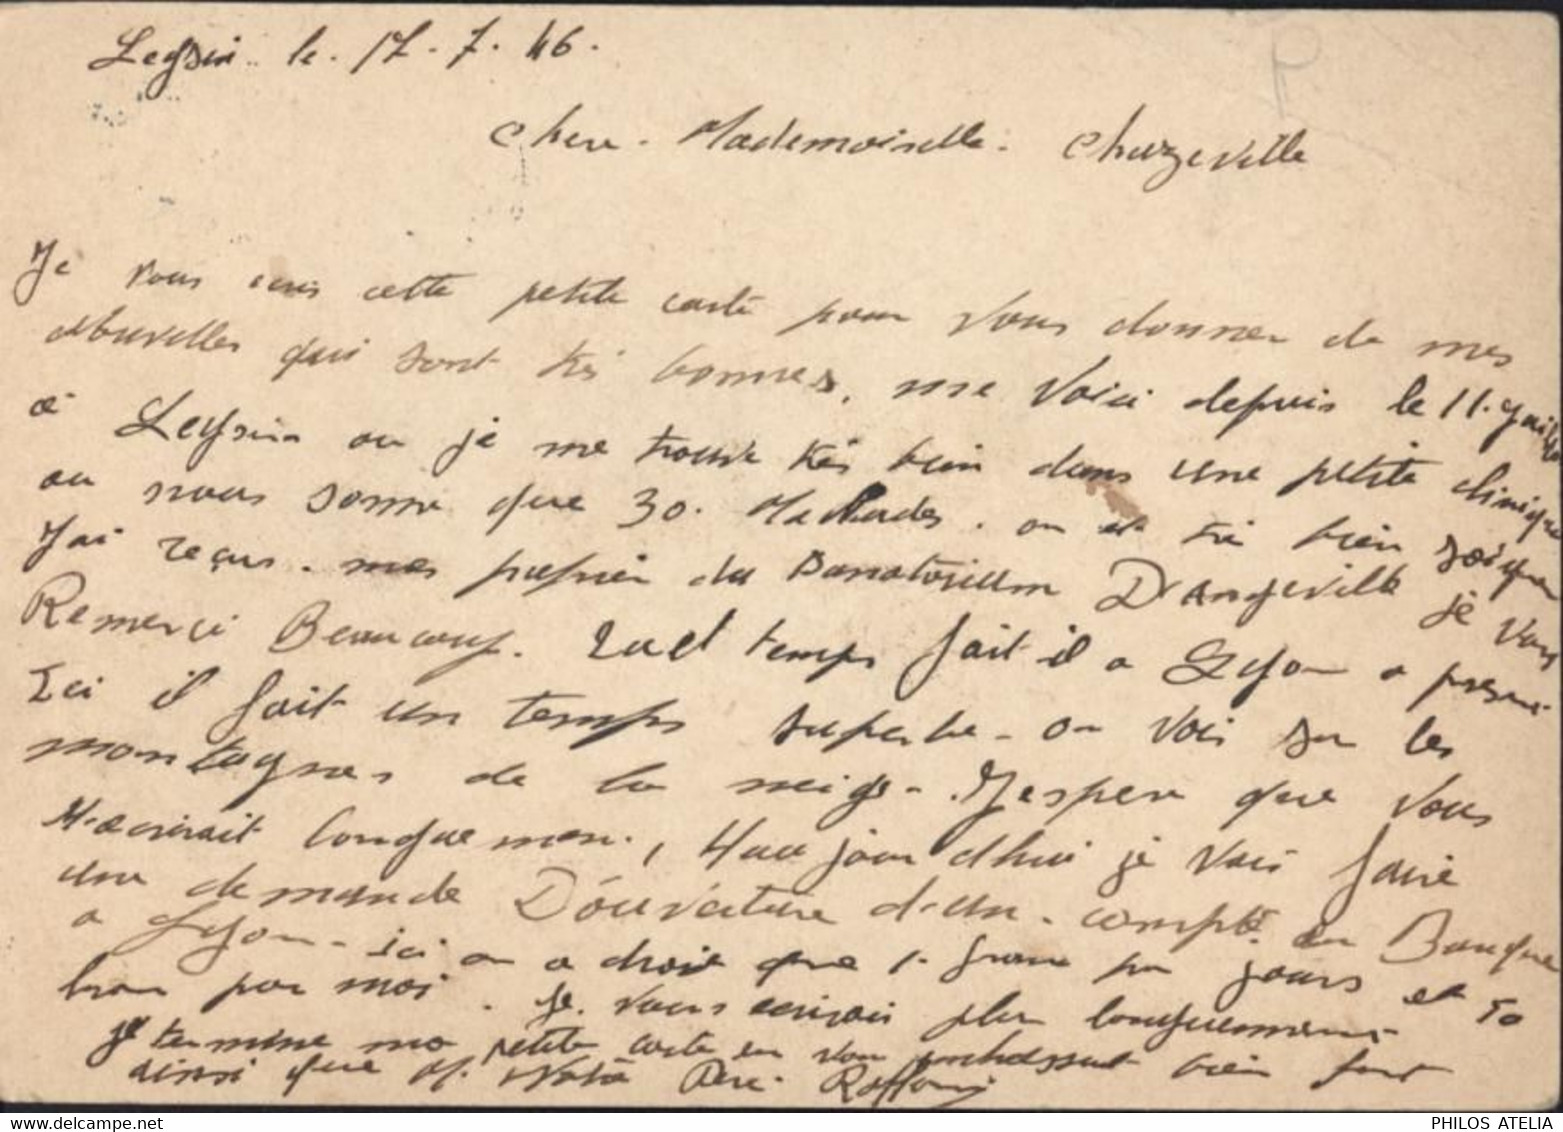 Leysin le 17.7.46.
Chere Mademoiselle Chuzeville
Je vous ecris cette petite carte pour vous donner de mes
Nouvelles qui sont très bonnes, me voici depuis le 11. juillet
a Leysin ou je me trouve très bien dans une petite clinique
ou nous somme que 30. Malades. on est trè bien soigner
J'ai reçus mes papier du Sanatorium D'Angeville je vous
Remerci Beaucoup. Quel temps fait-il a Lyon a present
Ici il fait un temps superbe on vois sur les
montagnes de la neige. J'esper que vous
M'ecrirait longuement, Haujourd'hui je vais faire
une demande D'ouverture d'un compte en Banque
a Lyon ici on a droit que 1. franc par jours et 50
par moi. Je vous ecrirai plus longuement
je termine ma petite carte en vous embrassant bien fort
ainsi que M. Votre Père. Raffour
PHILOS ATELIA